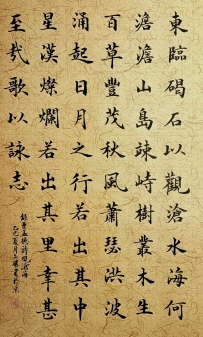 東臨碣石以觀滄水海何
澹澹山島竦峙樹叢木生
百草豐茂秋風蕭瑟洪波
涌起日月之行若出其中
星漢燦爛若出其里幸甚
至哉歌以詠志
錄曹孟德詩觀滄海